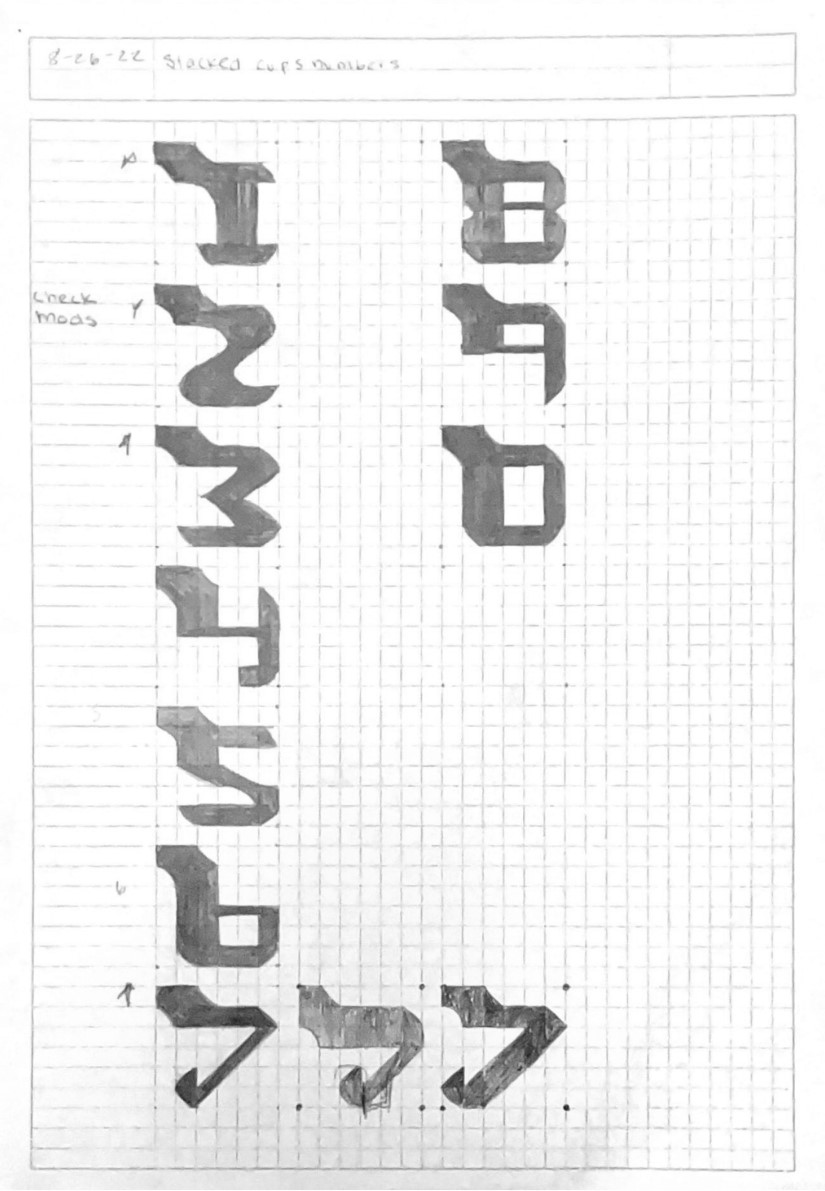 8-26-22 Stacked caps numbers
1 8
Check
mods
2 9
3 0
4
5
6
7 7 7